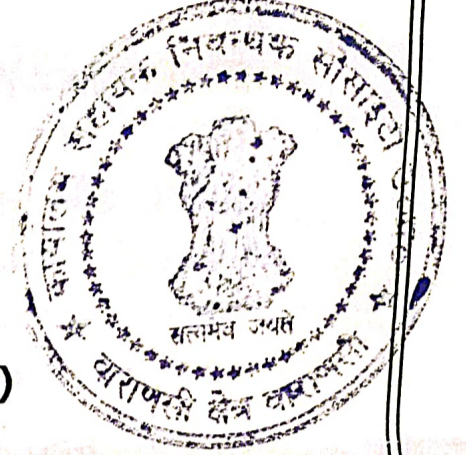 कार्यालय सहायक निबन्धक सोसाइटी
सत्यमेव जयते
वाराणसी क्षेत्र वाराणसी
)